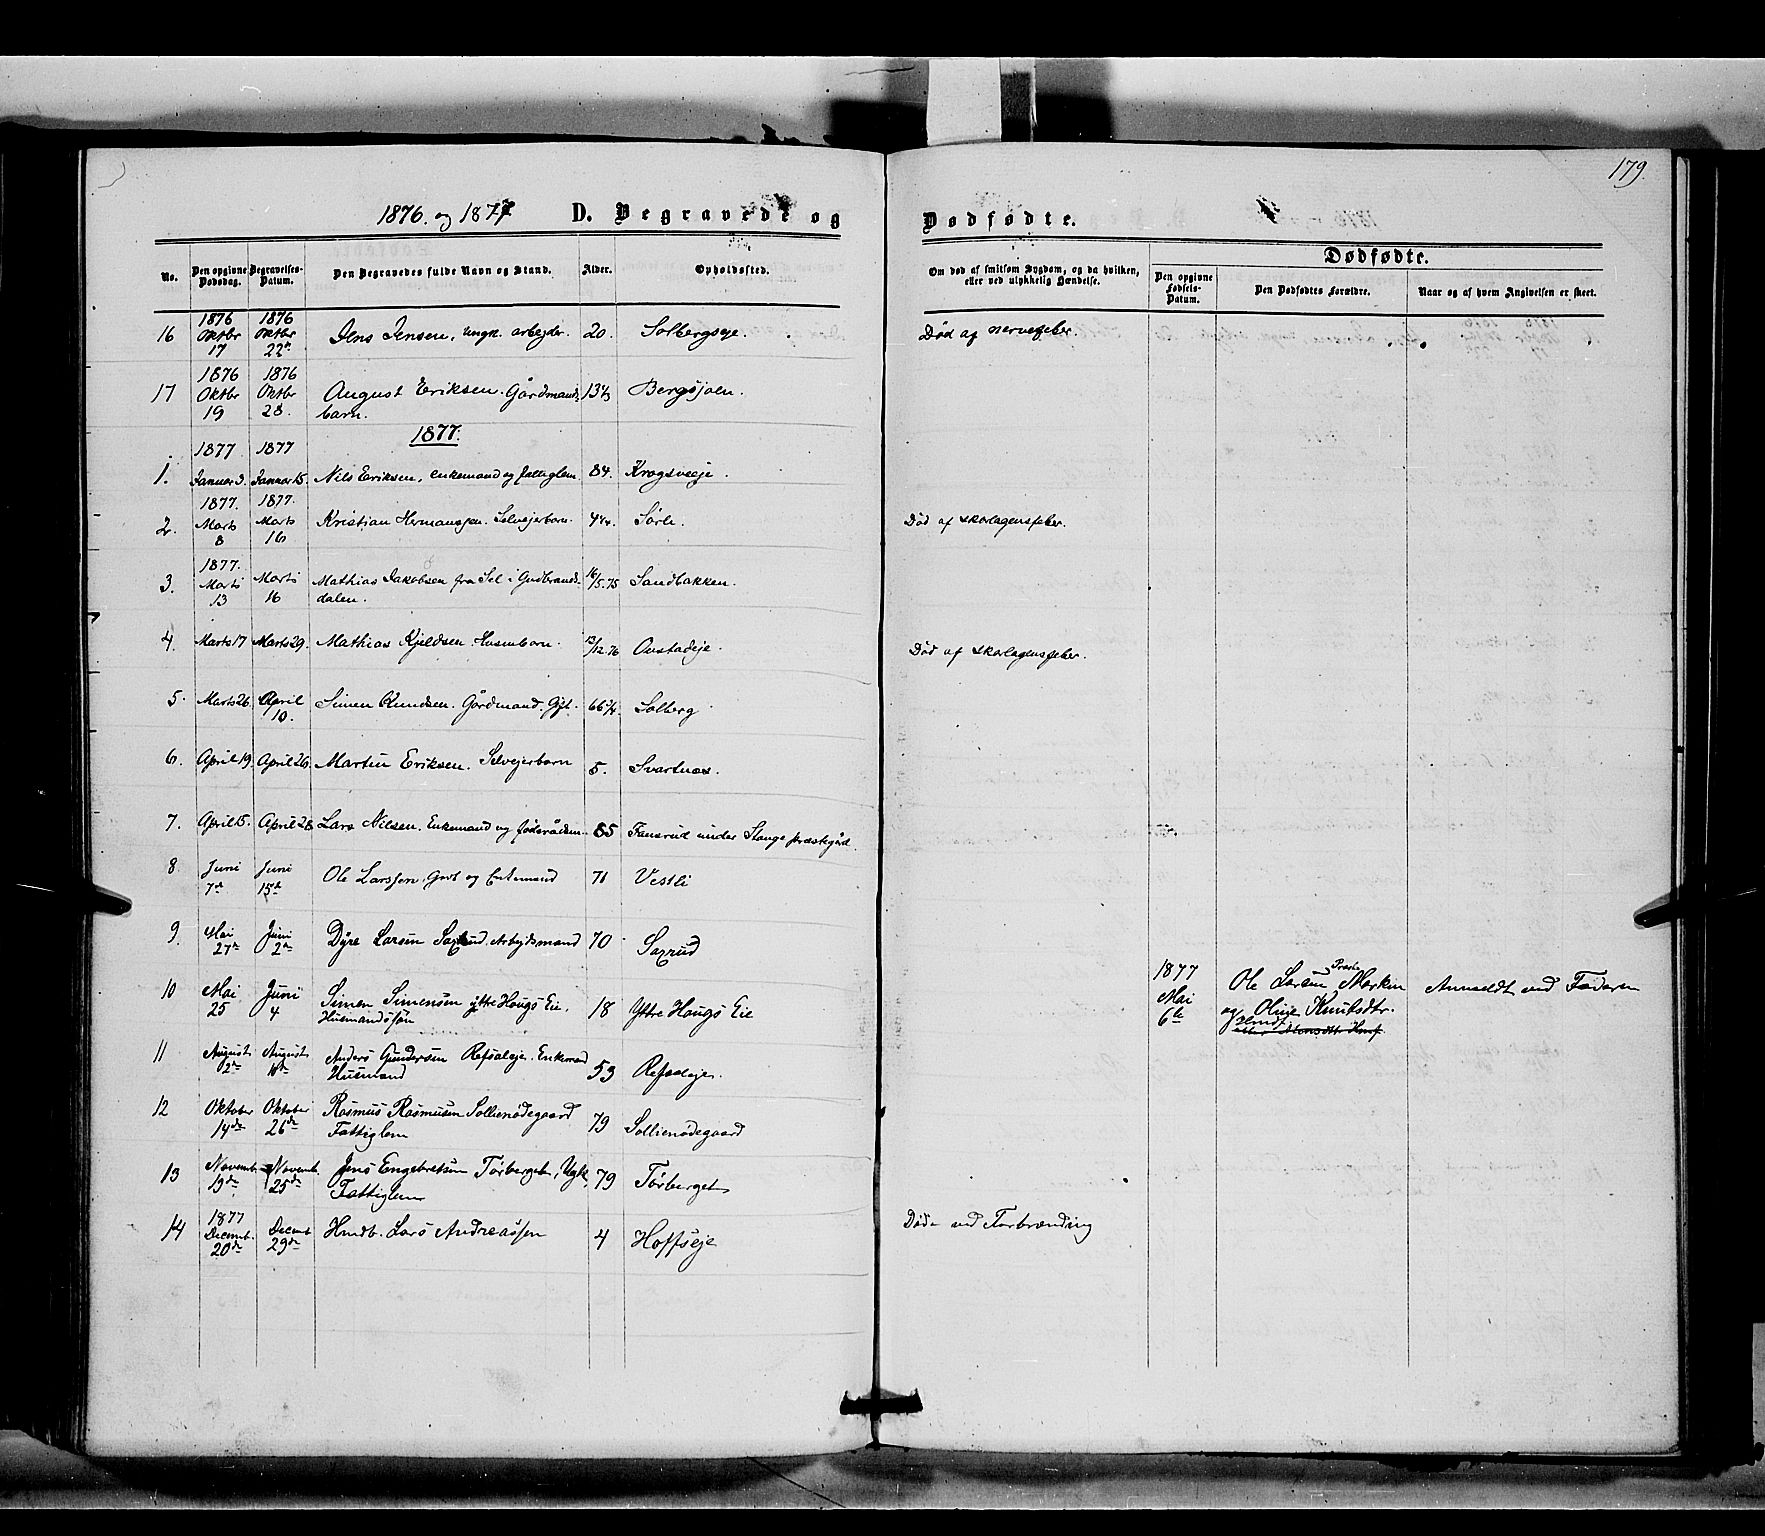 179.
1876. og 1877 D. Begravede og Dødfødte.
No. Den opgivne Dødsdag. Begravelses-Datum. Den Begravedes fulde Navn og Stand. Alder. Opholdssted. Om død af smitsom Sygdom, og da hvilken, eller ved ulykkelig Hændelse.
Dødfødte.
Den opgivne Fødsels-Datum. Den Dødfødtes Forældre. Naar og af hvem Angivelsen er skeet.
16 1876 Oktbr 17 1876 Oktbr 22n Jens Jensen, ungk. arbejder. 20. Solbergseje. Død af nervefeber.
17 1876 Oktbr 19 1876 Oktbr 28. August Eriksen. Gårdmands-
barn. 13 Bergsjøen.
1877.
1. 1877 Januar 3. 1877 Januar 15. Nils Eriksen, enkemand og fattiglem 84. Krogsveeje.
2. 1877. Marts 8 1877. Marts 16 Kristian Hermanssen. Selvejerbarn. Sörli. Død af skarlagensfeber.
3. 1877. Marts 13 Marts 16 Mathias Jakobsen fra Sel i Gudbrands-
dalen. 16/5.75 Sandbakken.
4. Marts 17 Marts 29. Mathias Kjeldsen. Husmbarn. 13/12.76 Oustadeje. Død af skarlagensfeber.
5. Marts 26. April 10. Simen Knudsen. Gårdmand. Gift. 66 Solberg
6. April 19. April 26. Martin Eriksen. Selvejerbarn 5. Svartnæs.
7. April 15. April 28 Lars Nilsen. Enkemand og föderådsm. 85 under Stange præstegård.
8. Juni 7de Juni 15de Ole Larssen, og Enkemand 71 Vestli
9. Mai 27de Juni 2den Dyre Larsen Saxrud. Arbejdsmand 70 Saxrud
10 Mai 25 Juni 4 Simen Simensen ytre Hougs Eie,
Husmandssøn 18 Yttre Hougs Eie
1877 Mai 6te Ole Larsen Præste Marken
og Oline Knutsdtr. Anmeldt ved Faderen
11 August 2den August 10de Anders Gundersen Refsaleje. Enkemand
Husmand 53 Refsaleje.
12 Oktober 14de Oktober 26de Rasmus Rasmusen Sollienødegaard
Fattiglem 79 Sollienødegaard
13 Novemb. 19de Novemb. 25de Jens Engebretsen Törberget, Ugk.
Fattiglem 79 Törberget
14 1877 Decemb. 20de Decemb 29de Hmdb. Lars Andreassen 4 Hoffseje Døde ved Forbrænding